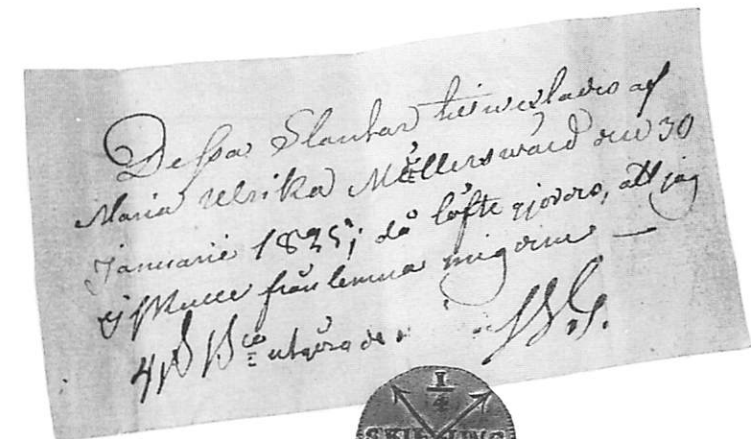 Dessa Slantar tillwexlades af
Maria Ulrika Möllerswärd den 30
Januarii 1825; då löfte gjordes, att jag
ej skulle från lemna mig dem —
4 Bco utgöra de
1/4
SKILLING